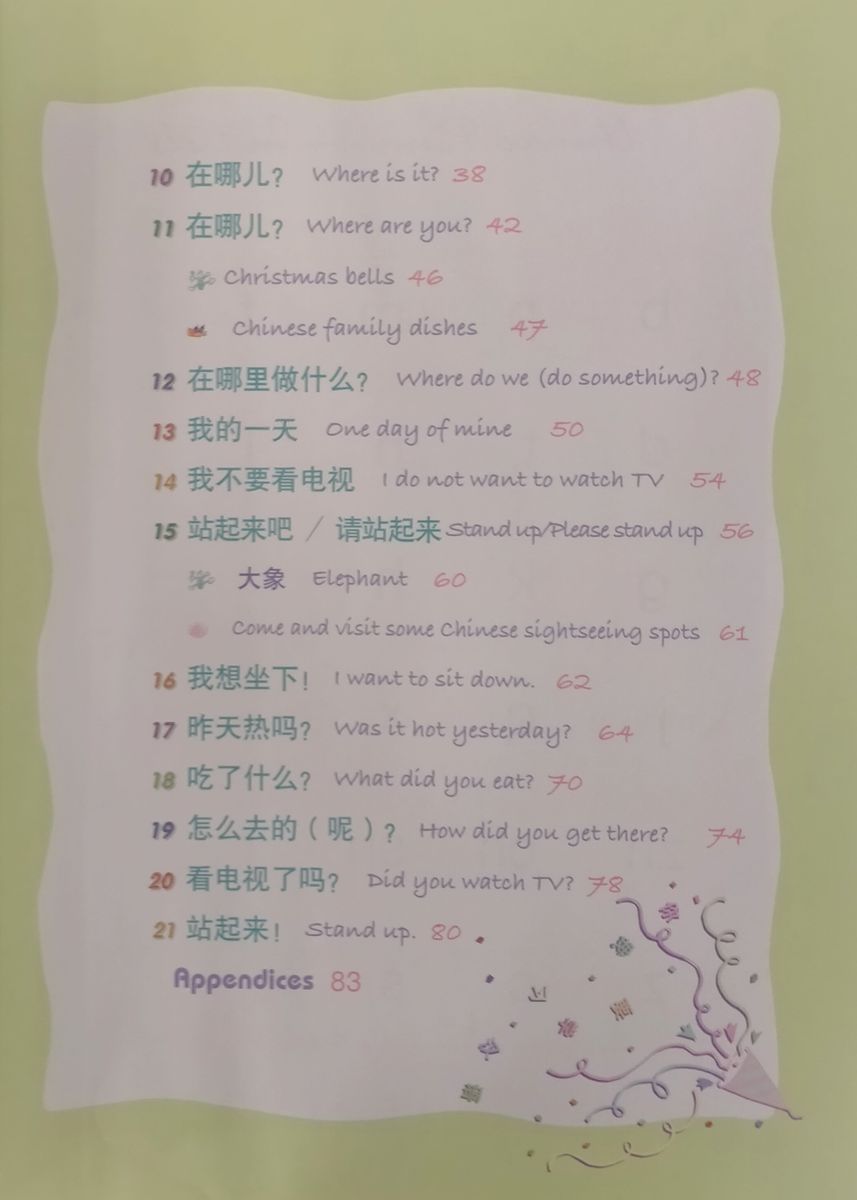 10 在哪儿? Where is it? 38
11 在哪儿? Where are you? 42
Christmas bells 46
Chinese family dishes 47
12 在哪里做什么? Where do we (do something)? 48
13 我的一天 One day of mine 50
14 我不要看电视 I do not want to watch TV 54
15 站起来吧 / 请站起来 Stand up/Please stand up 56
大象 Elephant 60
Come and visit some Chinese sightseeing spots 61
16 我想坐下! I want to sit down. 62
17 昨天热吗? Was it hot yesterday? 64
18 吃了什么? What did you eat? 70
19 怎么去的(呢)? How did you get there? 74
20 看电视了吗? Did you watch TV? 78
21 站起来! Stand up. 80
Appendices 83